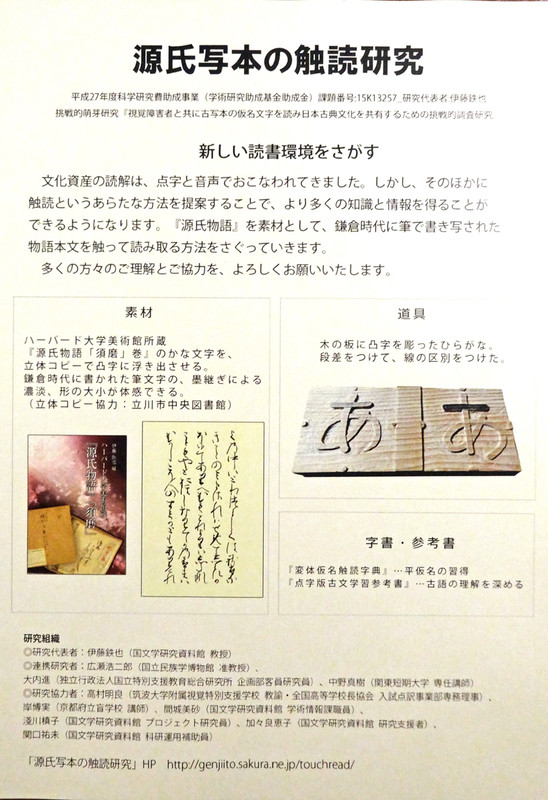 源氏写本の触読研究
平成27年度科学研究費助成事業（学術研究助成基金助成金）課題番号:15K13257_研究代表者:伊藤鉄也
挑戦的萌芽研究『視覚障害者と共に古写本の仮名文字を読み日本古典文化を共有するための挑戦的調査研究
新しい読書環境をさがす
文化資産の読解は、点字と音声でおこなわれてきました。しかし、そのほかに
触読というあらたな方法を提案することで、より多くの知識と情報を得ることが
できるようになります。『源氏物語』を素材として、鎌倉時代に筆で書き写された
物語本文を触って読み取る方法をさぐっていきます。
多くの方々のご理解とご協力を、よろしくお願いいたします。
素材
ハーバード大学美術館所蔵
『源氏物語「須磨」巻』のかな文字を、
立体コピーで凸字に浮き出させる。
鎌倉時代に書かれた筆文字の、墨継ぎによる
濃淡、形の大小が体感できる。
（立体コピー協力：立川市中央図書館）
『源氏物語』「須磨」
道具
木の板に凸字を彫ったひらがな。
段差をつけて、線の区別をつけた。
あ あ
字書・参考書
『変体仮名触読字典』…平仮名の習得
『点字版古文学習参考書』…古語の理解を深める
研究組織
◎研究代表者：伊藤鉄也（国文学研究資料館 教授）
◎連携研究者：広瀬浩二郎（国立民族学博物館 准教授）、
大内進（独立行政法人国立特別支援教育総合研究所 企画部客員研究員）、中野真樹（関東短期大学 専任講師）
◎研究協力者：高村明良（筑波大学附属視覚特別支援学校 教諭・全国高等学校長協会 入試点訳事業部専務理事）、
岸博実（京都府立盲学校 講師）、間城美砂（国文学研究資料館 学術情報課職員）、
淺川槙子（国文学研究資料館 プロジェクト研究員）、加々良恵子（国文学研究資料館 研究支援者）、
関口祐未（国文学研究資料館 科研運用補助員）
「源氏写本の触読研究」HP http://genjiito.sakura.ne.jp/touchread/